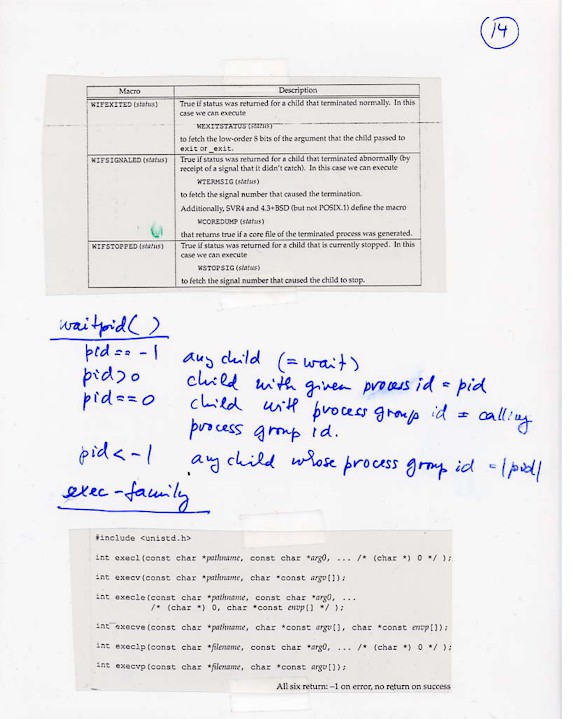 14
Macro Description
WIFEXITED (status) True if status was returned for a child that terminated normally. In this
case we can execute
WEXITSTATUS (status)
to fetch the low-order 8 bits of the argument that the child passed to
exit or _exit.
WIFSIGNALED (status) True if status was returned for a child that terminated abnormally (by
receipt of a signal that it didn't catch). In this case we can execute
WTERMSIG (status)
to fetch the signal number that caused the termination.
Additionally, SVR4 and 4.3+BSD (but not POSIX.1) define the macro
WCOREDUMP (status)
that returns true if a core file of the terminated process was generated.
WIFSTOPPED (status) True if status was returned for a child that is currently stopped. In this
case we can execute
WSTOPSIG (status)
to fetch the signal number that caused the child to stop.
waitpid( )
pid == -1 any child (= wait)
pid > 0 child with given process id = pid
pid == 0 child with process group id = calling
process group id.
pid < -1 any child whose process group id = |pid|
exec-family
#include <unistd.h>
int execl(const char *pathname, const char *arg0, ... /* (char *) 0 */ );
int execv(const char *pathname, char *const argv[]);
int execle(const char *pathname, const char *arg0, ...
/* (char *) 0, char *const envp[] */ );
int execve(const char *pathname, char *const argv[], char *const envp[]);
int execlp(const char *filename, const char *arg0, ... /* (char *) 0 */ );
int execvp(const char *filename, char *const argv[]);
All six return: -1 on error, no return on success